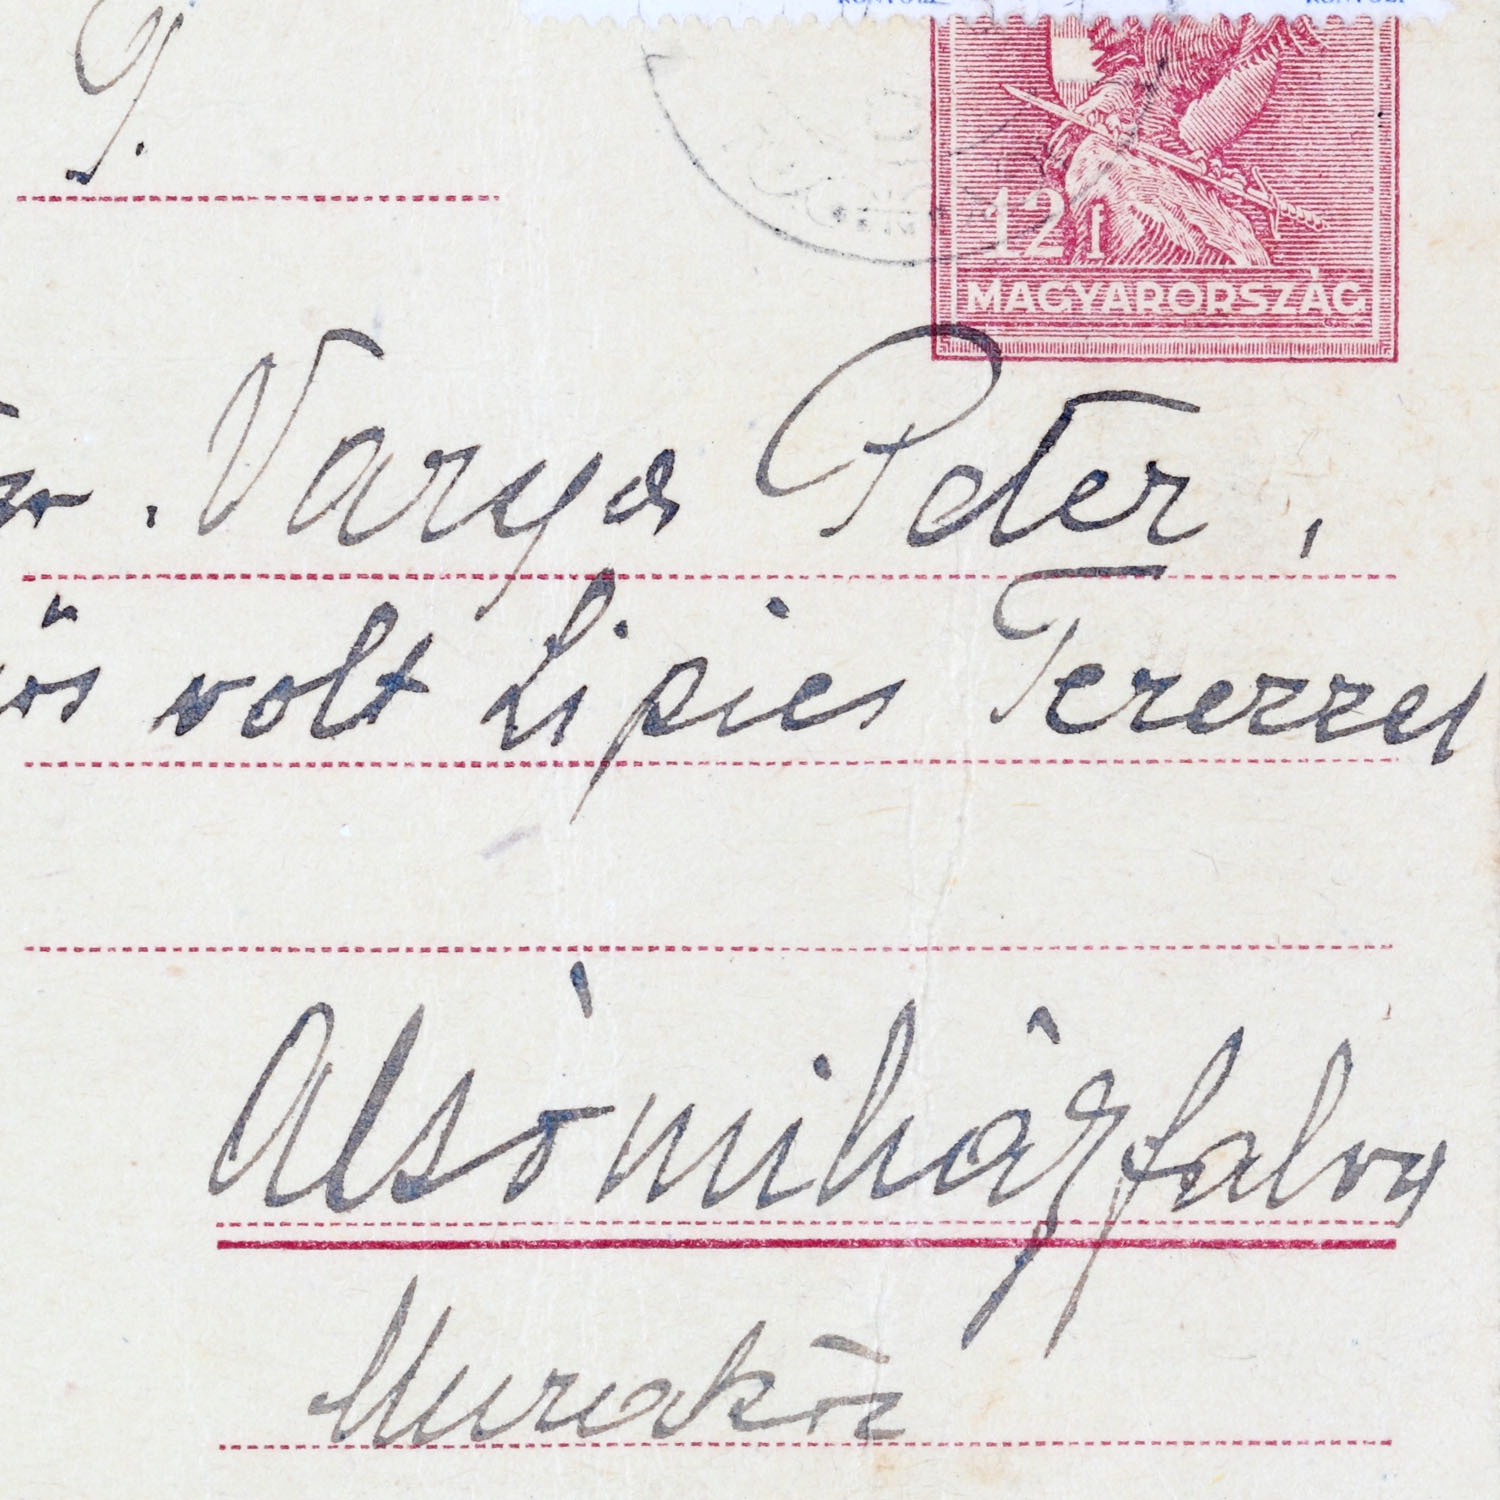 G.
12 f
MAGYARORSZÁG
Varga Péter,
volt Lipics Terezzel
Alsómihályfalva
Muraköz